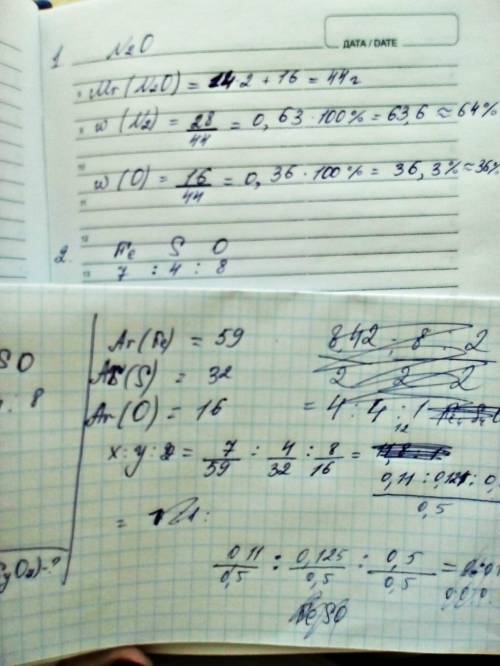 ДАТА / DATE
1 N2O
Mr(N2O) = 14·2 + 16 = 44г
w(N2) = 28/44 = 0,63·100% = 63,6 ≈ 64%
w(O) = 16/44 = 0,36·100% = 36,3% ≈ 36%
2. Fe S O
7 : 4 : 8
SO
: 8
Ar(Fe) = 59
Ar(S) = 32
Ar(O) = 16
= 4 : 4 : 1
x : y : z = 7/59 : 4/32 : 8/16 =
0,11 : 0,125 : 0,
0,5
=
0,11/0,5 : 0,125/0,5 : 0,5/0,5 =
FeSO
yOz)-?